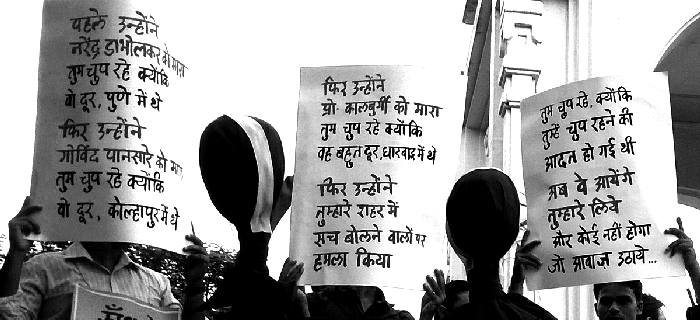 पहले उन्होंने
नरेंद्र डाभोलकर को मारा
तुम चुप रहे क्योंकि
वो दूर, पुणे में थे
फिर उन्होंने
गोविंद पानसारे को मारा
तुम चुप रहे क्योंकि
वो दूर, कोल्हापुर में थे
फिर उन्होंने
प्रो. कालबुर्गी को मारा
तुम चुप रहे क्योंकि
वह बहुत दूर, धारवाड में थे
फिर उन्होंने
तुम्हारे शहर में
सच बोलने वालों पर
हमला किया
तुम चुप रहे, क्योंकि
तुम्हें चुप रहने की
आदत हो गई थी
अब वे आयेंगे
तुम्हारे लिये
और कोई नहीं होगा
जो आवाज़ उठाये...